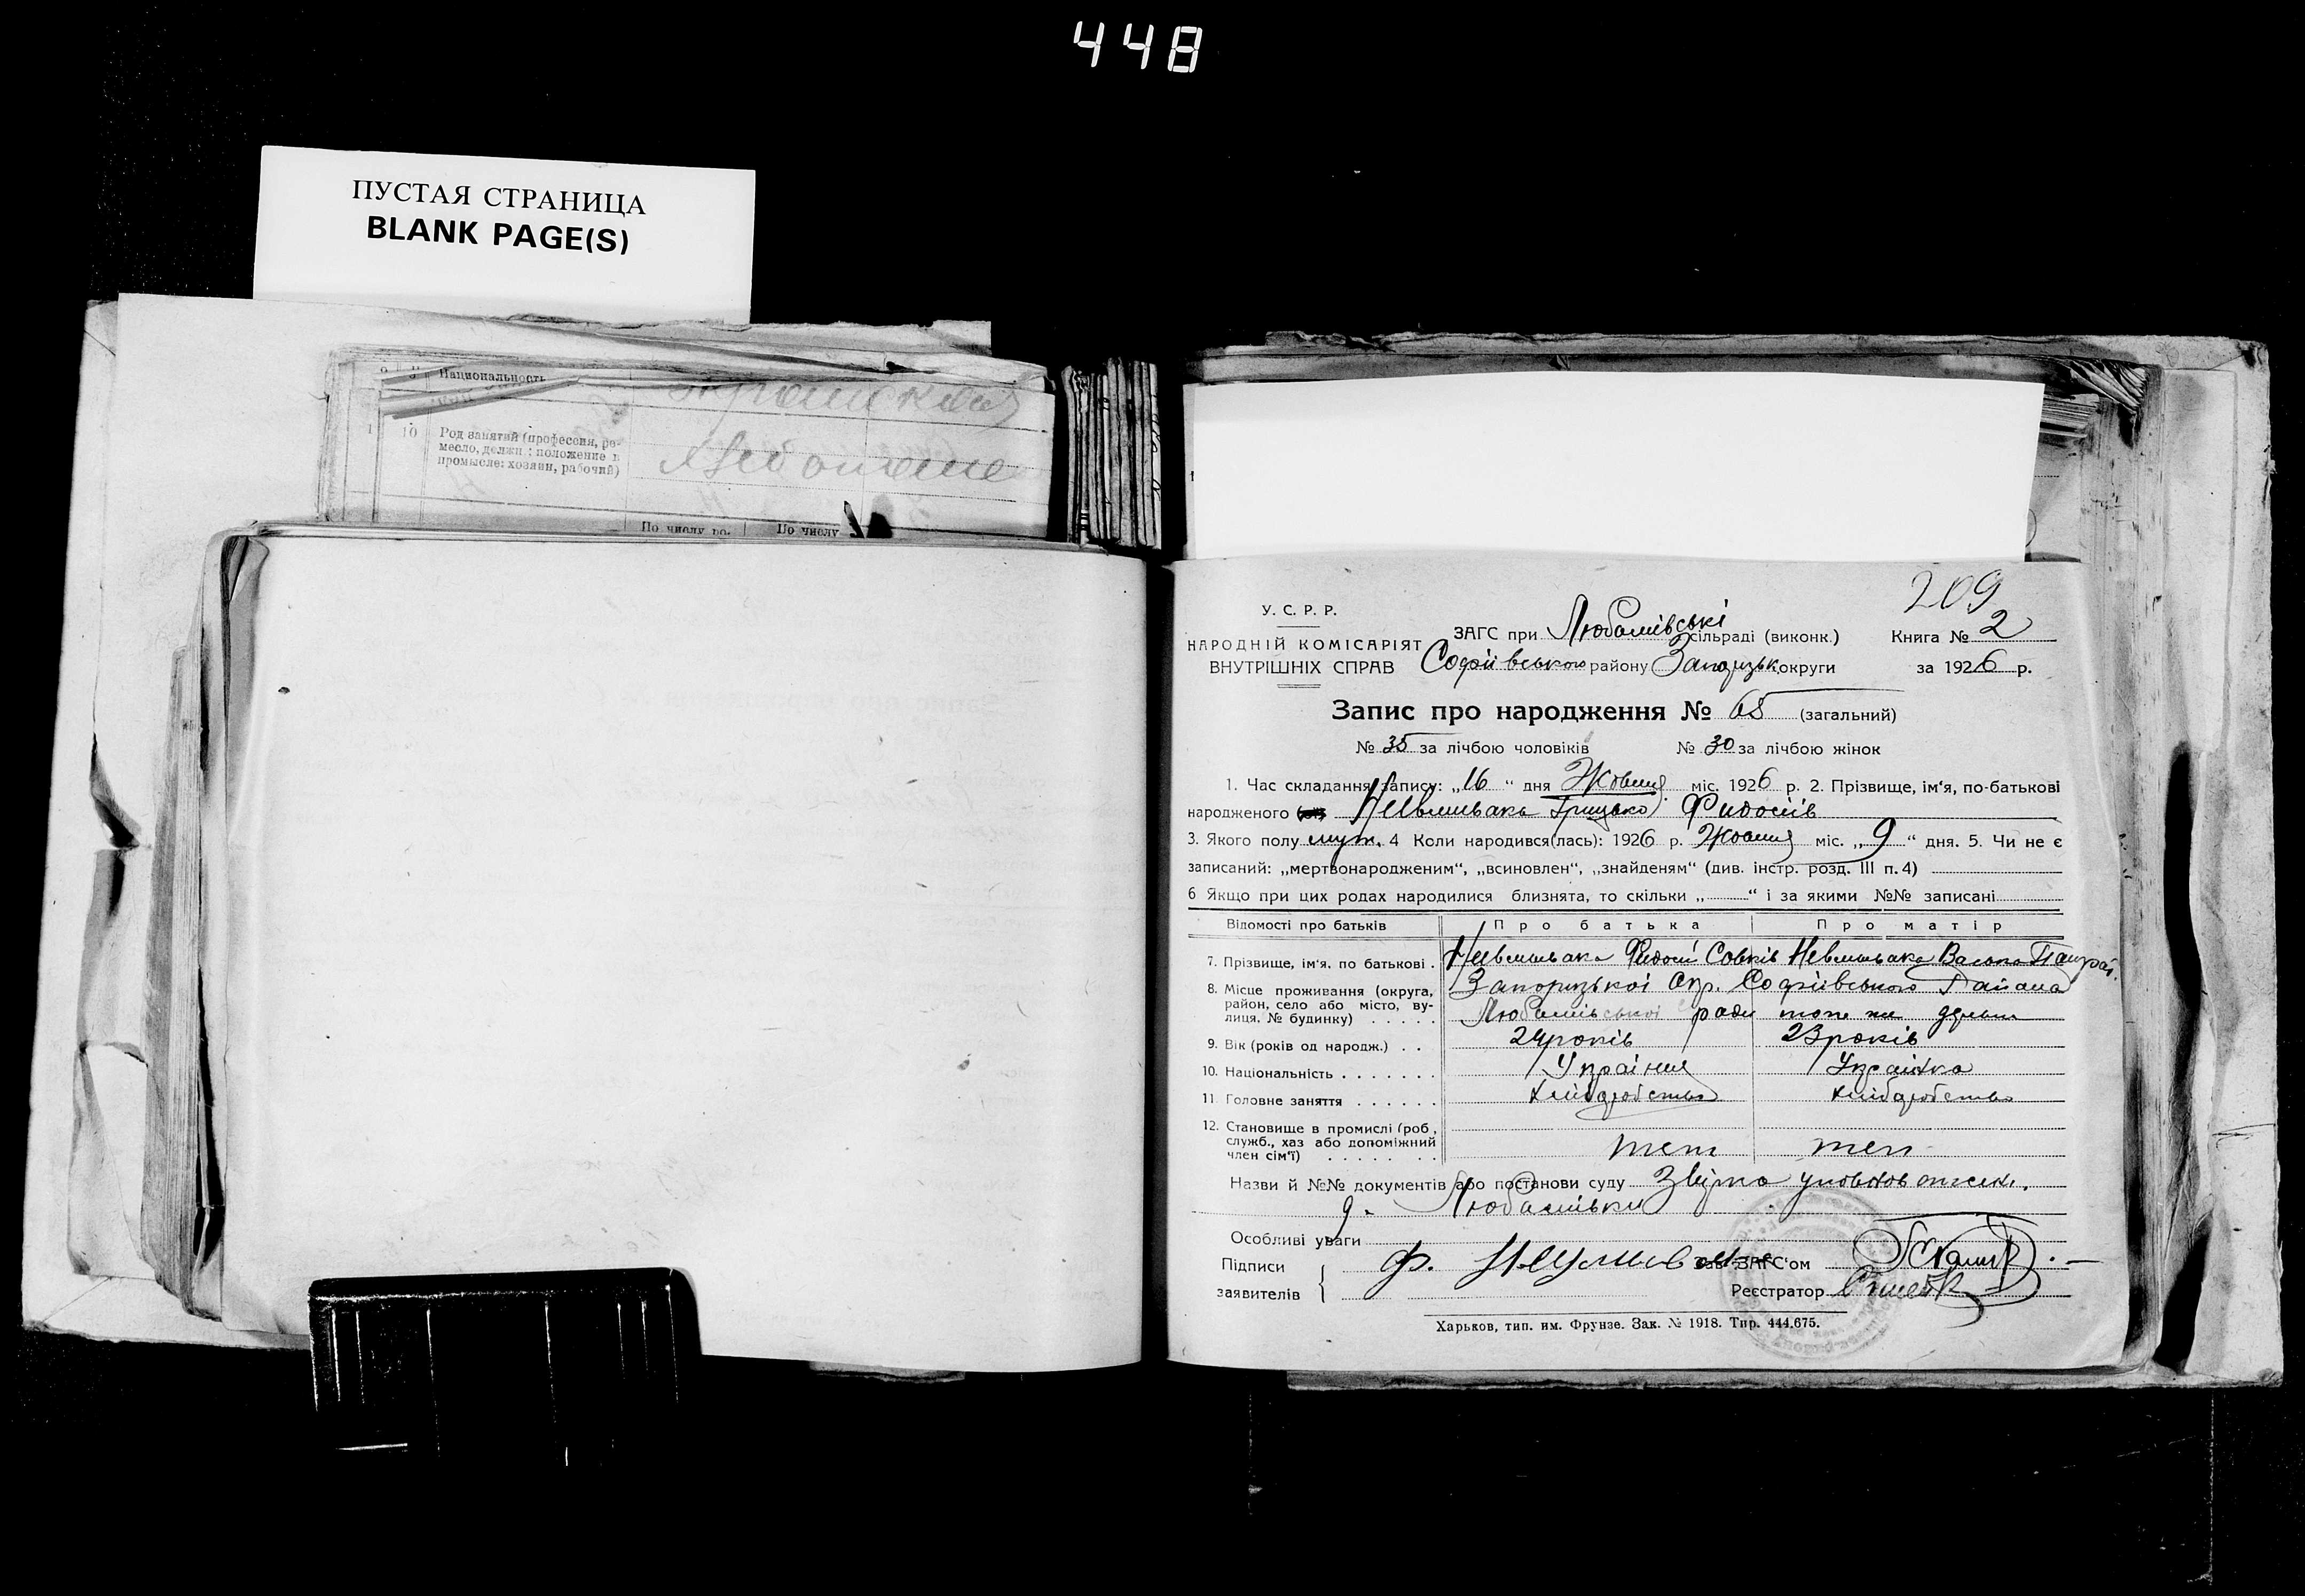 448
ПУСТАЯ СТРАНИЦА
BLANK PAGE(S)
Национальность
10 Род занятий (профессия, ре-
месло, должн.; положение в
промысле: хозяин, рабочий)
По числу ро. По числу
209
У. С. Р. Р.
НАРОДНІЙ КОМІСАРІЯТ
ВНУТРІШНІХ СПРАВ
ЗАГС при Любамівські сільраді (виконк.) Книга № 2
Софіївського району Запоризьк. округи за 1926 р.
Запис про народження № 65 (загальний)
№ 35 за лічбою чоловіків № 30 за лічбою жінок
1. Час складання запису: „16“ дня Жовтня міс. 1926 р. 2. Прізвище, ім‘я, по-батькові
народженого Невмивака Грицько Фидосіїв
3. Якого полу муж. 4 Коли народився(лась): 1926 р. Жовтня міс. „9“ дня. 5. Чи не є
записаний: „мертвонародженим“, „всиновлен“, „знайденям“ (див. інстр. розд. III п. 4)
6 Якщо при цих родах народилися близнята, то скільки „ “ і за якими №№ записані
Відомості про батьків Про батька Про матір
7. Прізвище, ім‘я, по батькові . Невмивака Фидосій Савків Невмивака
8. Місце проживання (округа,
район, село або місто, ву-
лиця, № будинку) . . . . .
Запоризької Окр. Софіївського Району
Любамівської ради тоже
9. Вік (років од народж.) . . 24 років 23 років
10. Національність . . . . . . . Українец Українка
11. Головне заняття . . . . . . хліборобство хліборобство
12. Становище в промислі (роб.,
служб., хаз або допоміжний
член сім‘ї) . . . . . . .
член член
Назви й №№ документів або постанови суду
Любамівки
Особливі уваги
Підписи
заявителів
Ф.
Зав. ЗАГС‘ом
Реєстратор
Харьков, тип. им. Фрунзе. Зак. № 1918. Тир. 444.675.